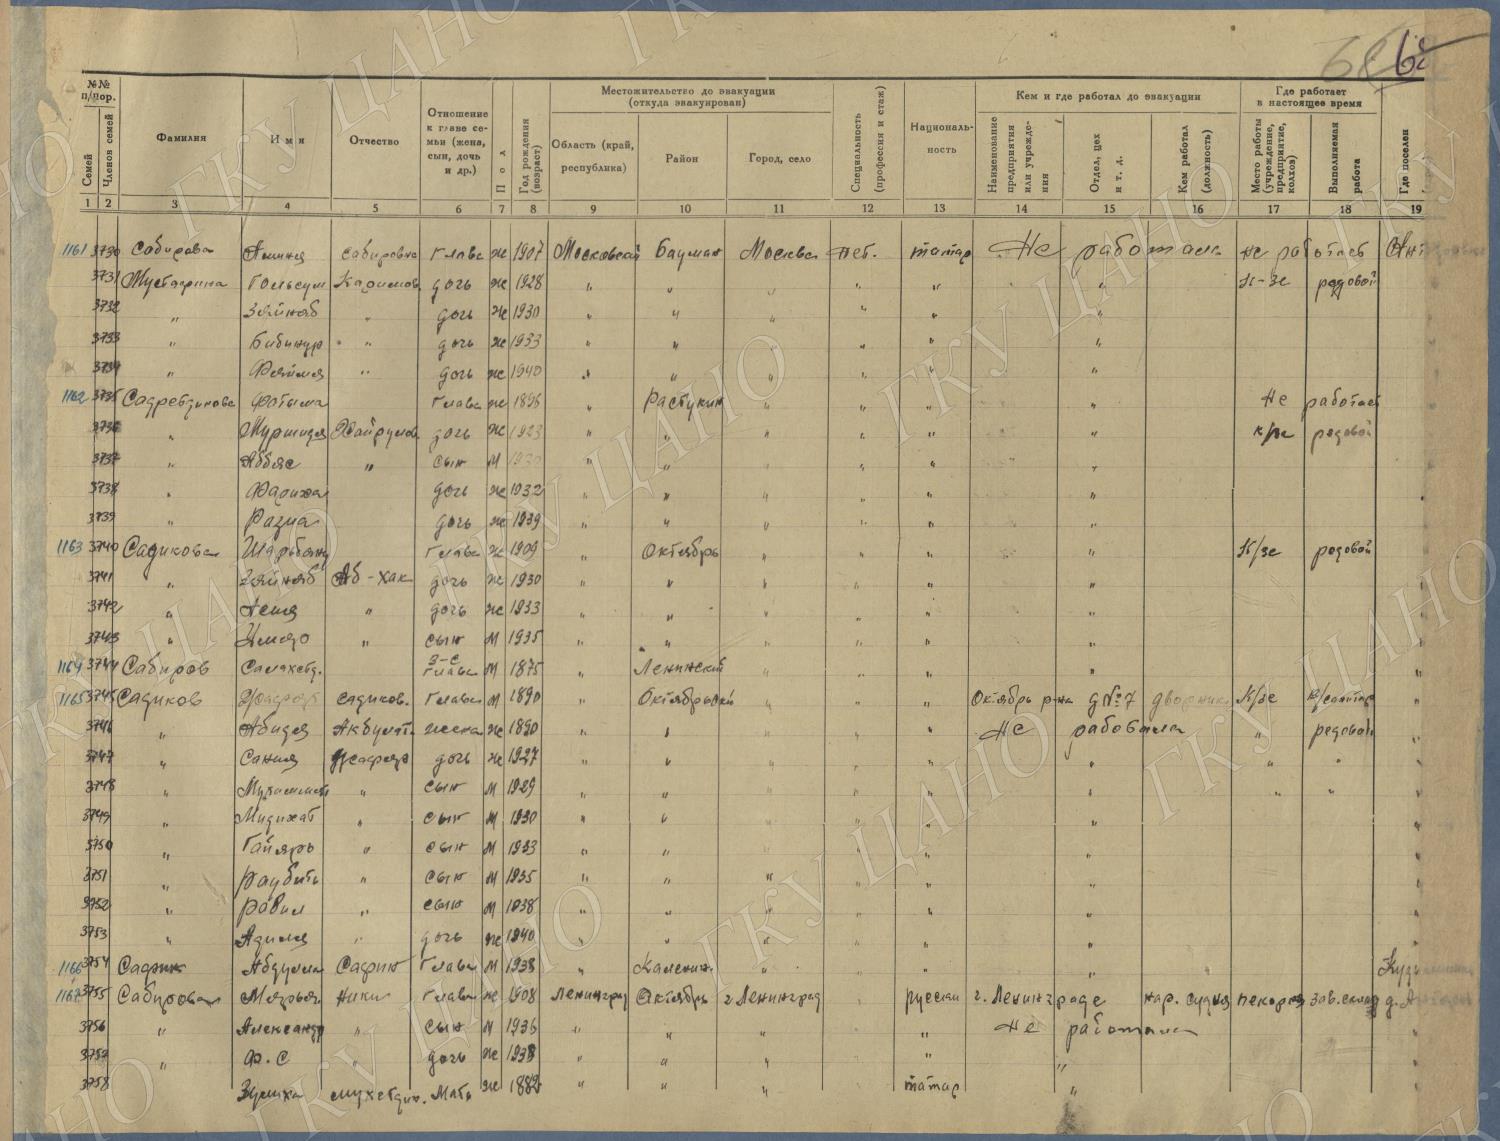 62
№№ п/пор.
Семей
Членов семей
Фамилия
Имя
Отчество
Отношение к главе семьи (жена, сын, дочь и др.)
Пол
Год рождения (возраст)
Местожительство до эвакуации (откуда эвакуирован)
Область (край, республика)
Район
Город, село
Специальность (профессия и стаж)
Националь-ность
Кем и где работал до эвакуации
Наименование предприятия или учреждения
Отдел, цех и т. д.
Кем работал (должность)
Где работает в настоящее время
Место работы (учреждение, предприятие, колхоз)
Выполняемая работа
Где поселен
1 2 3 4 5 6 7 8 9 10 11 12 13 14 15 16 17 18 19
1161 3730 Сабирова Амина Сабировна Глава ж 1907 Московской Бауман Москва нет. татар Не работала не работает
3731 Мустафина Гольсум Каримов дочь ж 1928 " " " " " " к-зе рядовой
3732 " Зяйнаб " дочь ж 1930 " " " " " "
3733 " Бибинур " дочь ж 1933 " " " " " "
3734 " " дочь ж 1940 " " " " " "
1162 3735 Садретдинова Фатыма Глава ж 1896 " Растукин " " " " Не работает
3736 " Муршидя Хайрулов дочь ж 1923 " " " " " " к/зе рядовой
3737 " Аббяс " сын м 1930 " " " " " "
3738 " Фарихая дочь ж 1932 " " " " " "
3739 " Разиа дочь ж 1939 " " " " " "
1163 3740 Садикова Шарьбану Глава ж 1909 " Октябрь " " " " К/зе рядовой
3741 " Зяйняб Аб-хак дочь ж 1930 " " " " " "
3742 " Асия " дочь ж 1933 " " " " " "
3743 " " сын м 1935 " " " " " "
1164 3744 Сабиров Салахетд. Глава м 1875 " Ленинский " "
1165 3745 Садиков Садиков. Глава м 1890 " Октябрьский " " Октябрь р-на д№7 дворник К/зе
3746 " Абидя Акбулат жена ж 1890 " " " " " Не работала " рядовой
3747 " Сания Жафяр дочь ж 1927 " " " " " " " "
3748 " " сын м 1929 " " " " " " " "
3749 " Мидихат " сын м 1930 " " " " " "
3750 " Гайярь " сын м 1933 " " " " " "
3751 " Раубить " сын м 1935 " " " " " "
3752 " Равил " сын м 1938 " " " " " "
3753 " Адиля " дочь ж 1940 " " " " " "
1166 3754 Сафин Абдулла Сафин Глава м 1938 " Каленин. " " " "
1167 3755 Сабирова Мярьям Глава ж 1908 Ленинград Октябрь г Ленинград русская г. Ленинграде нар. судья пекарня зав. склад
3756 " Александр " сын м 1936 " " " " Не работала
3757 " Ф. С " дочь ж 1938 " " " " "
3758 Зулиха Мухетдин. Мать ж 1882 " " " татар "